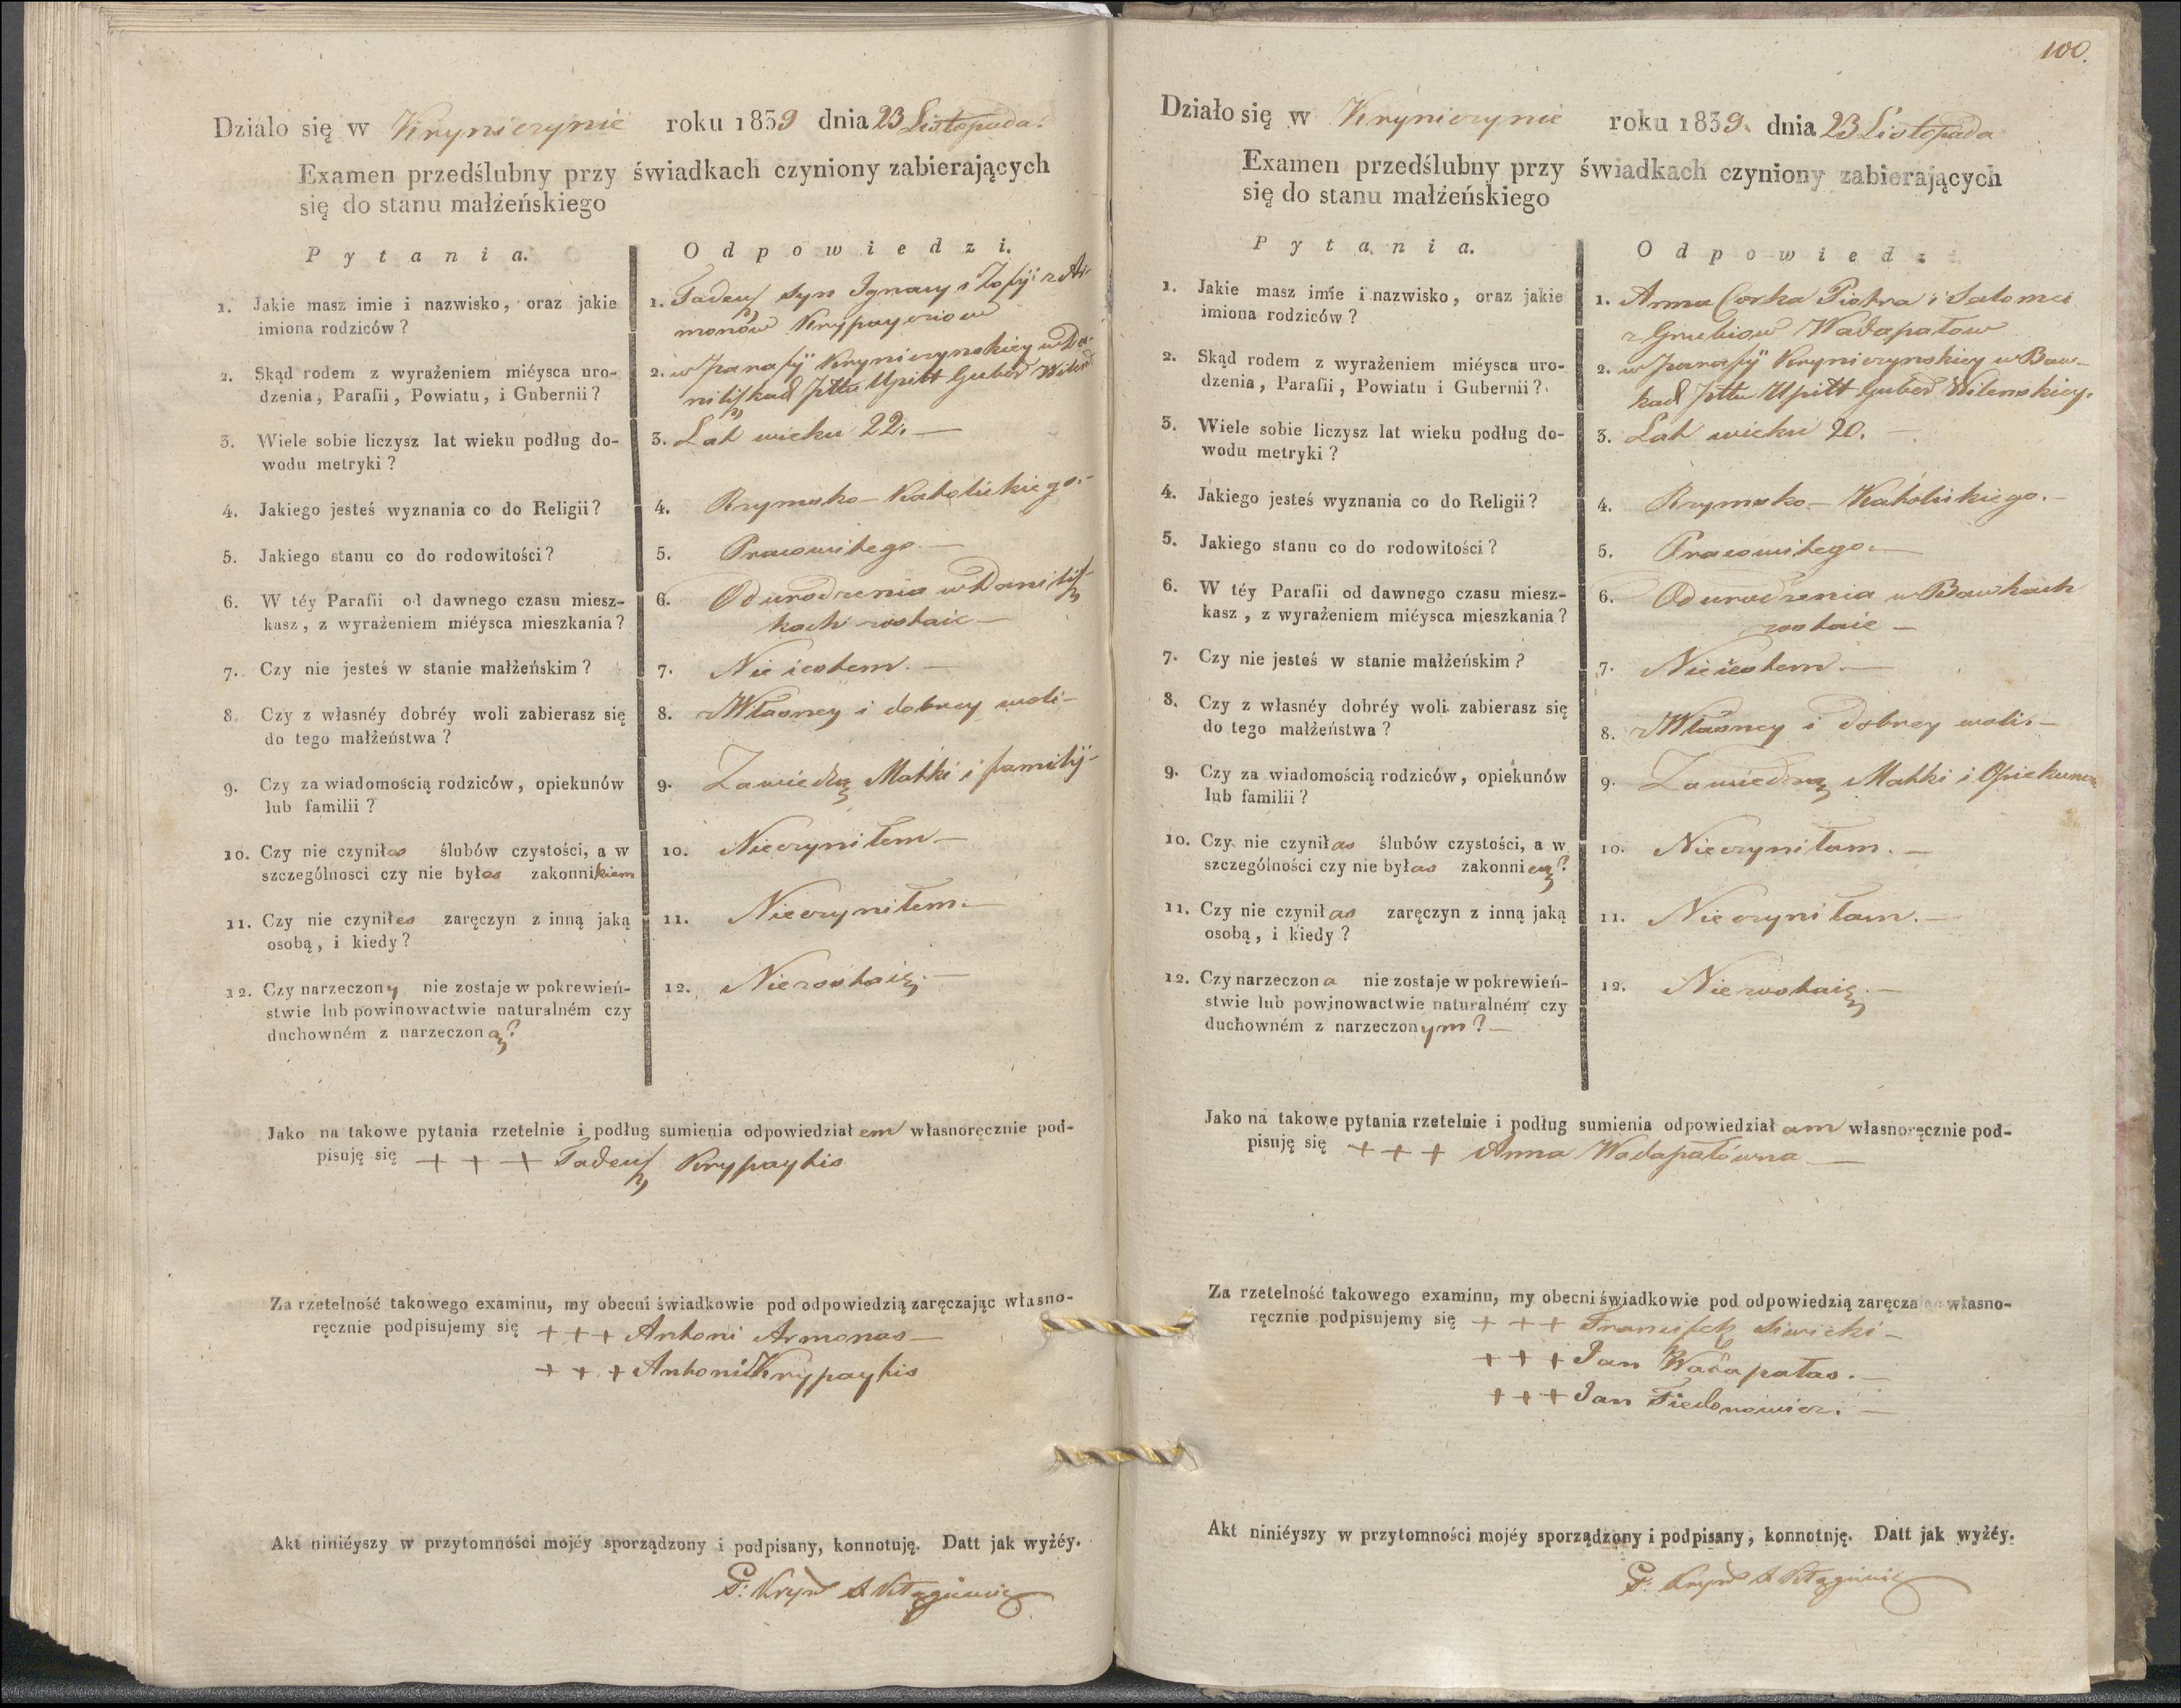 Działo się w Kryniczynie roku 1839 dnia 23 Listopada.
Examen przedślubny przy świadkach czyniony zabierających
się do stanu małżeńskiego
Pytania.
Odpowiedzi.
1. Jakie masz imie i nazwisko, oraz jakie
imiona rodziców?
1. Tadeusz syn Ignacy i Zofyi z Ar-
monów Krypayciow
2. Skąd rodem z wyrażeniem miéysca uro-
dzenia, Parafii, Powiatu, i Gubernii?
2. w Parafij Kryniczynskiey w Da-
niliszkach Pttu Upitt Guber Wilens
3. Wiele sobie liczysz lat wieku podług do-
wodu metryki?
3. Lat wieku 22. —
4. Jakiego jesteś wyznania co do Religii?
4. Rzymsko-Katolickiego. -
5. Jakiego stanu co do rodowitości?
5. Pracowitego. —
6. W téy Parafii od dawnego czasu miesz-
kasz, z wyrażeniem miéysca mieszkania?
6. Od urodzenia w Danilisz-
kach zostaie —
7. Czy nie jesteś w stanie małżeńskim?
7. Nie iestem. —
8. Czy z własnéy dobréy woli zabierasz się
do tego małżeństwa?
8. z Własney i dobrey woli —
9. Czy za wiadomością rodziców, opiekunów
lub familii?
9. Za wiedzą Matki i familij -
10. Czy nie czyniłes ślubów czystości, a w
szczególnosci czy nie byłes zakonnikiem
10. Nieczyniłem —
11. Czy nie czyniłes zaręczyn z inną jaką
osobą, i kiedy?
11. Nieczyniłem. —
12. Czy narzeczony nie zostaje w pokrewień-
stwie lub powinowactwie naturalném czy
duchowném z narzeczoną?
12. Niezostaię. —
Jako na takowe pytania rzetelnie i podług sumienia odpowiedziałem własnoręcznie pod-
pisuję się + + + Tadeusz Krypaytis
Za rzetelność takowego examinu, my obecni świadkowie pod odpowiedzią zaręczając własno-
ręcznie podpisujemy się + + + Antoni Armonas —
+ + + Antoni Krypaytis
Akt niniéyszy w przytomności mojéy sporządzony i podpisany, konnotuję. Datt jak wyżéy.
100.
Działo się w Kryniczynie roku 1839. dnia 23 Listopada
Examen przedślubny przy świadkach czyniony zabierających
się do stanu małżeńskiego
Pytania.
Odpowiedzi
1. Jakie masz imie i nazwisko, oraz jakie
imiona rodziców?
1. Anna Corka Piotra i Salomei
z Grubiow Wadapałow
2. Skąd rodem z wyrażeniem miéysca uro-
dzenia, Parafii, Powiatu i Gubernii?
2. w Parafij Kryniczynskiey w Baw-
kach Pttu Upitt Guber Wilenskiey.
3. Wiele sobie liczysz lat wieku podług do-
wodu metryki?
3. Lat wieku 20. —
4. Jakiego jesteś wyznania co do Religii?
4. Rzymsko-Katolickiego. -
5. Jakiego stanu co do rodowitości?
5. Pracowitego. —
6. W téy Parafii od dawnego czasu miesz-
kasz, z wyrażeniem miéysca mieszkania?
6. Od urodzenia w Bawkach
zostaie —
7. Czy nie jesteś w stanie małżeńskim?
7. Nie iestem. —
8. Czy z własnéy dobréy woli zabierasz się
do tego małżeństwa?
8. z Własney i dobrey woli. —
9. Czy za wiadomością rodziców, opiekunów
lub familii?
9. Za wiedzą Matki i Opiekunow
10. Czy nie czyniłas ślubów czystości, a w
szczególności czy nie byłas zakonnicą?
10. Nieczyniłam. —
11. Czy nie czyniłas zaręczyn z inną jaką
osobą, i kiedy?
11. Nieczyniłam. —
12. Czy narzeczona nie zostaje w pokrewień-
stwie lub powinowactwie naturalném czy
duchowném z narzeczonym? —
12. Niezostaię. —
Jako na takowe pytania rzetelnie i podług sumienia odpowiedziałam własnoręcznie pod-
pisuję się + + + Anna Wadapałowna —
Za rzetelność takowego examinu, my obecni świadkowie pod odpowiedzią zaręczając własno-
ręcznie podpisujemy się + + + Franciszek Siwicki —
+ + + Jan Wadapałas. —
+ + + Jan Fiedorowicz. —
Akt niniéyszy w przytomności mojéy sporządzony i podpisany, konnotuję. Datt jak wyżéy.